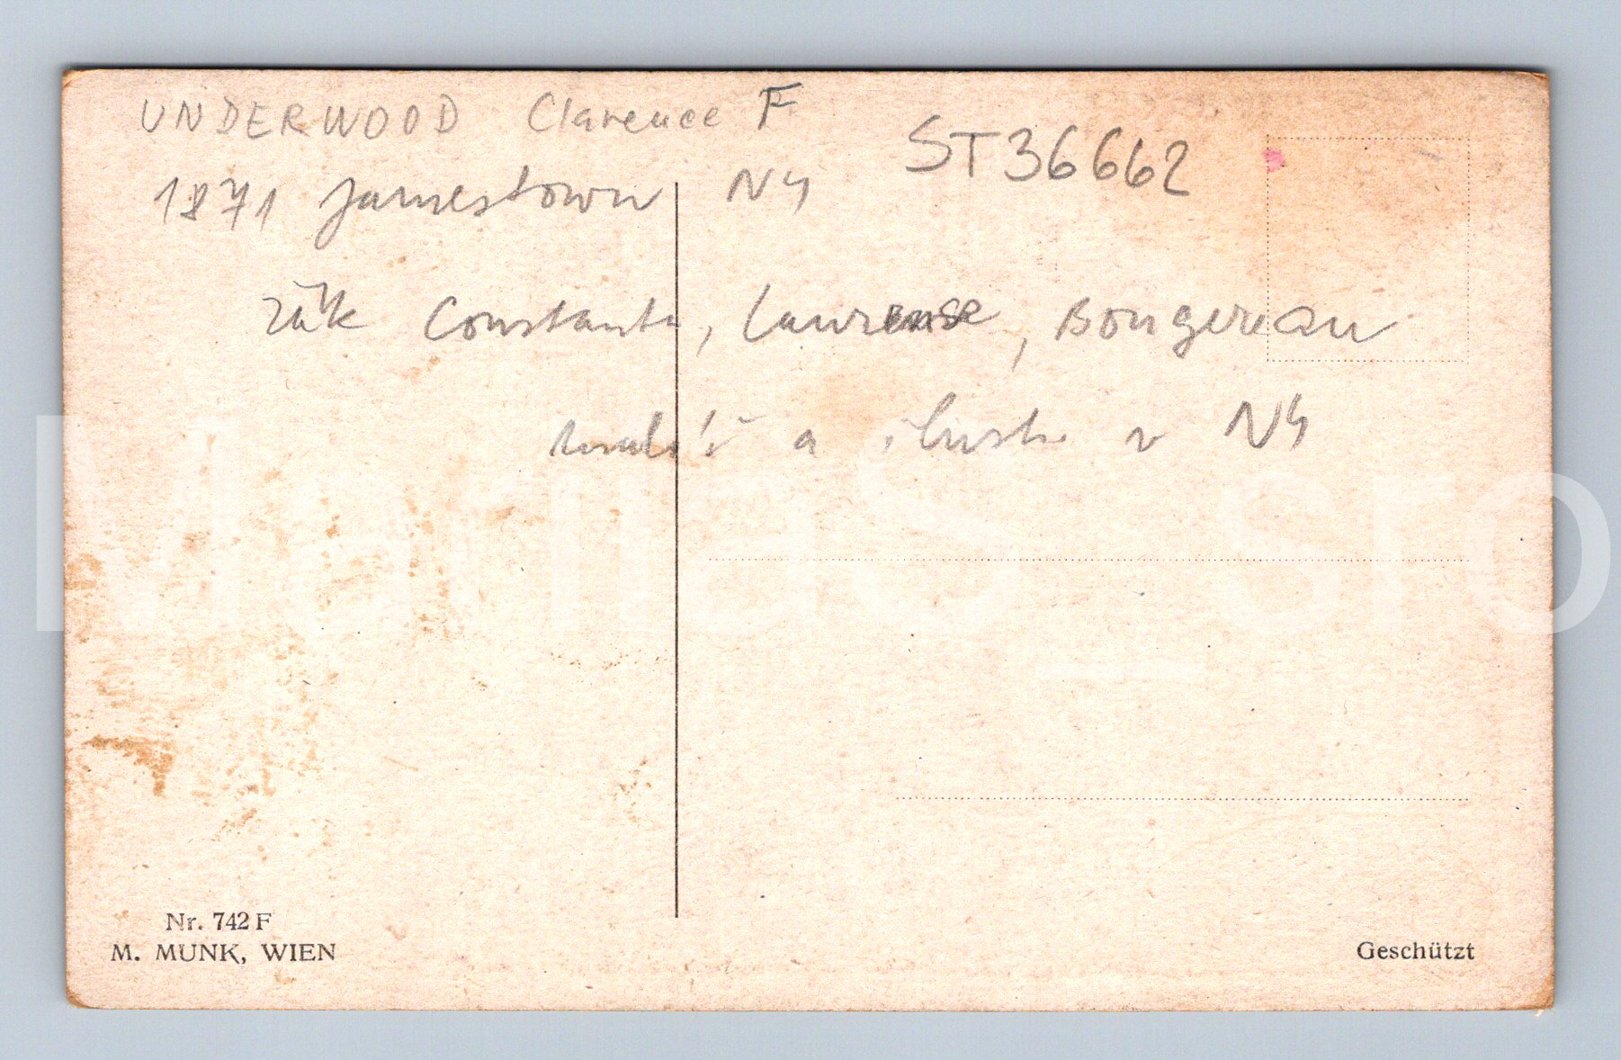 UNDERWOOD Clarence F
ST36662
1871 Jamestown NY
žák Constanta, Laurense, Bougereau
malíř a ilustr v NY
Nr. 742 F
M. MUNK, WIEN
Geschützt